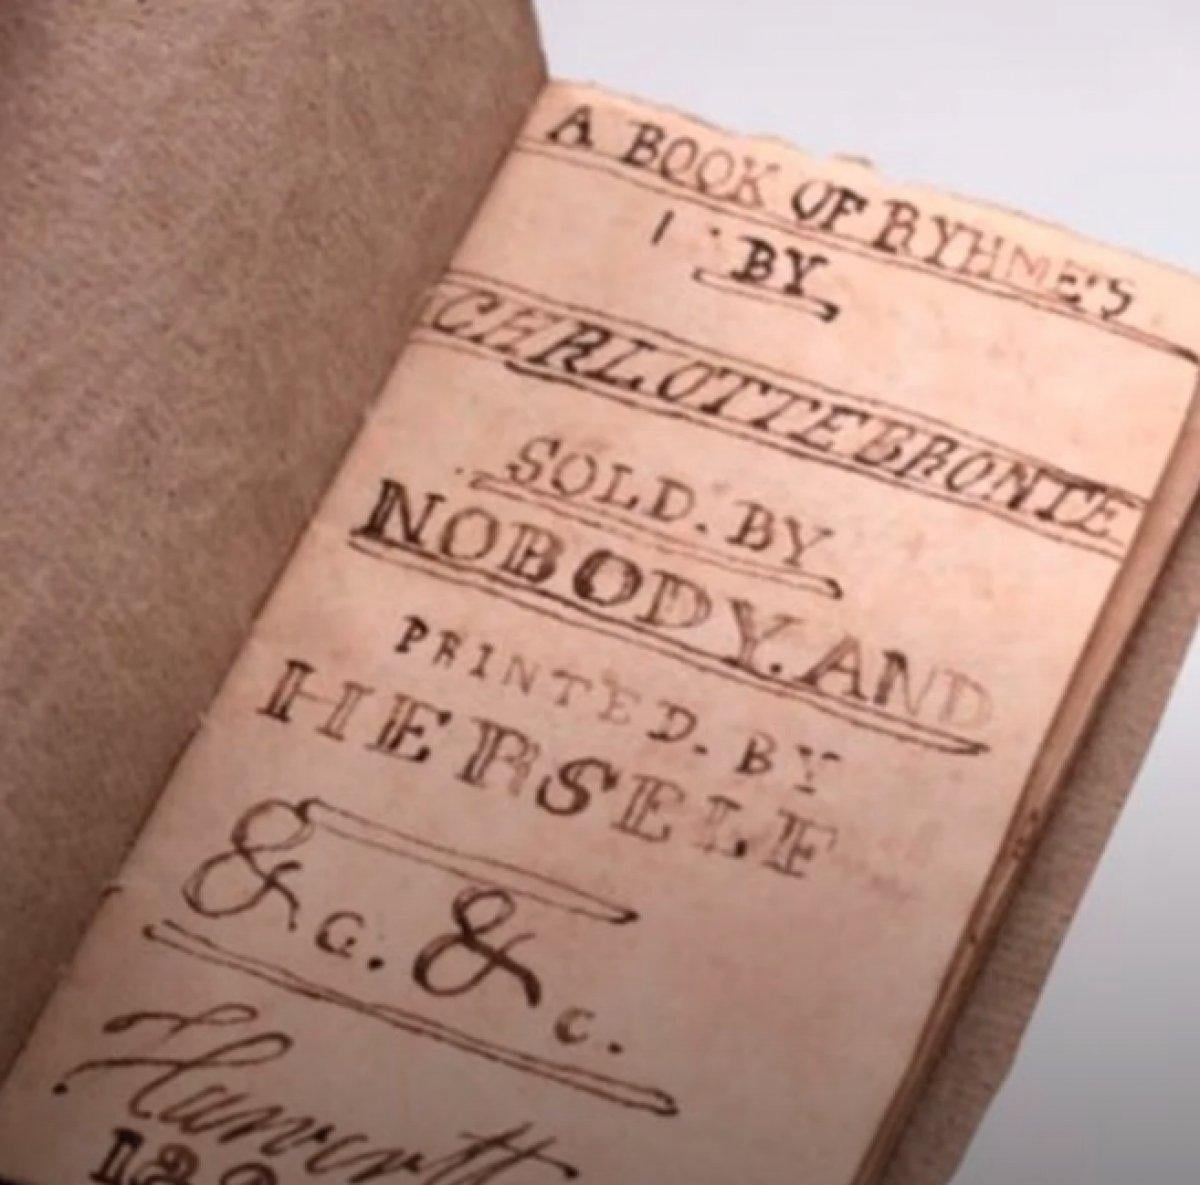 A BOOK OF RYHMES
BY
CHRLOTTE BRONTE
SOLD. BY
NOBODY. AND
PRINTED. BY
HERSELF
&c. &c.
Haworth